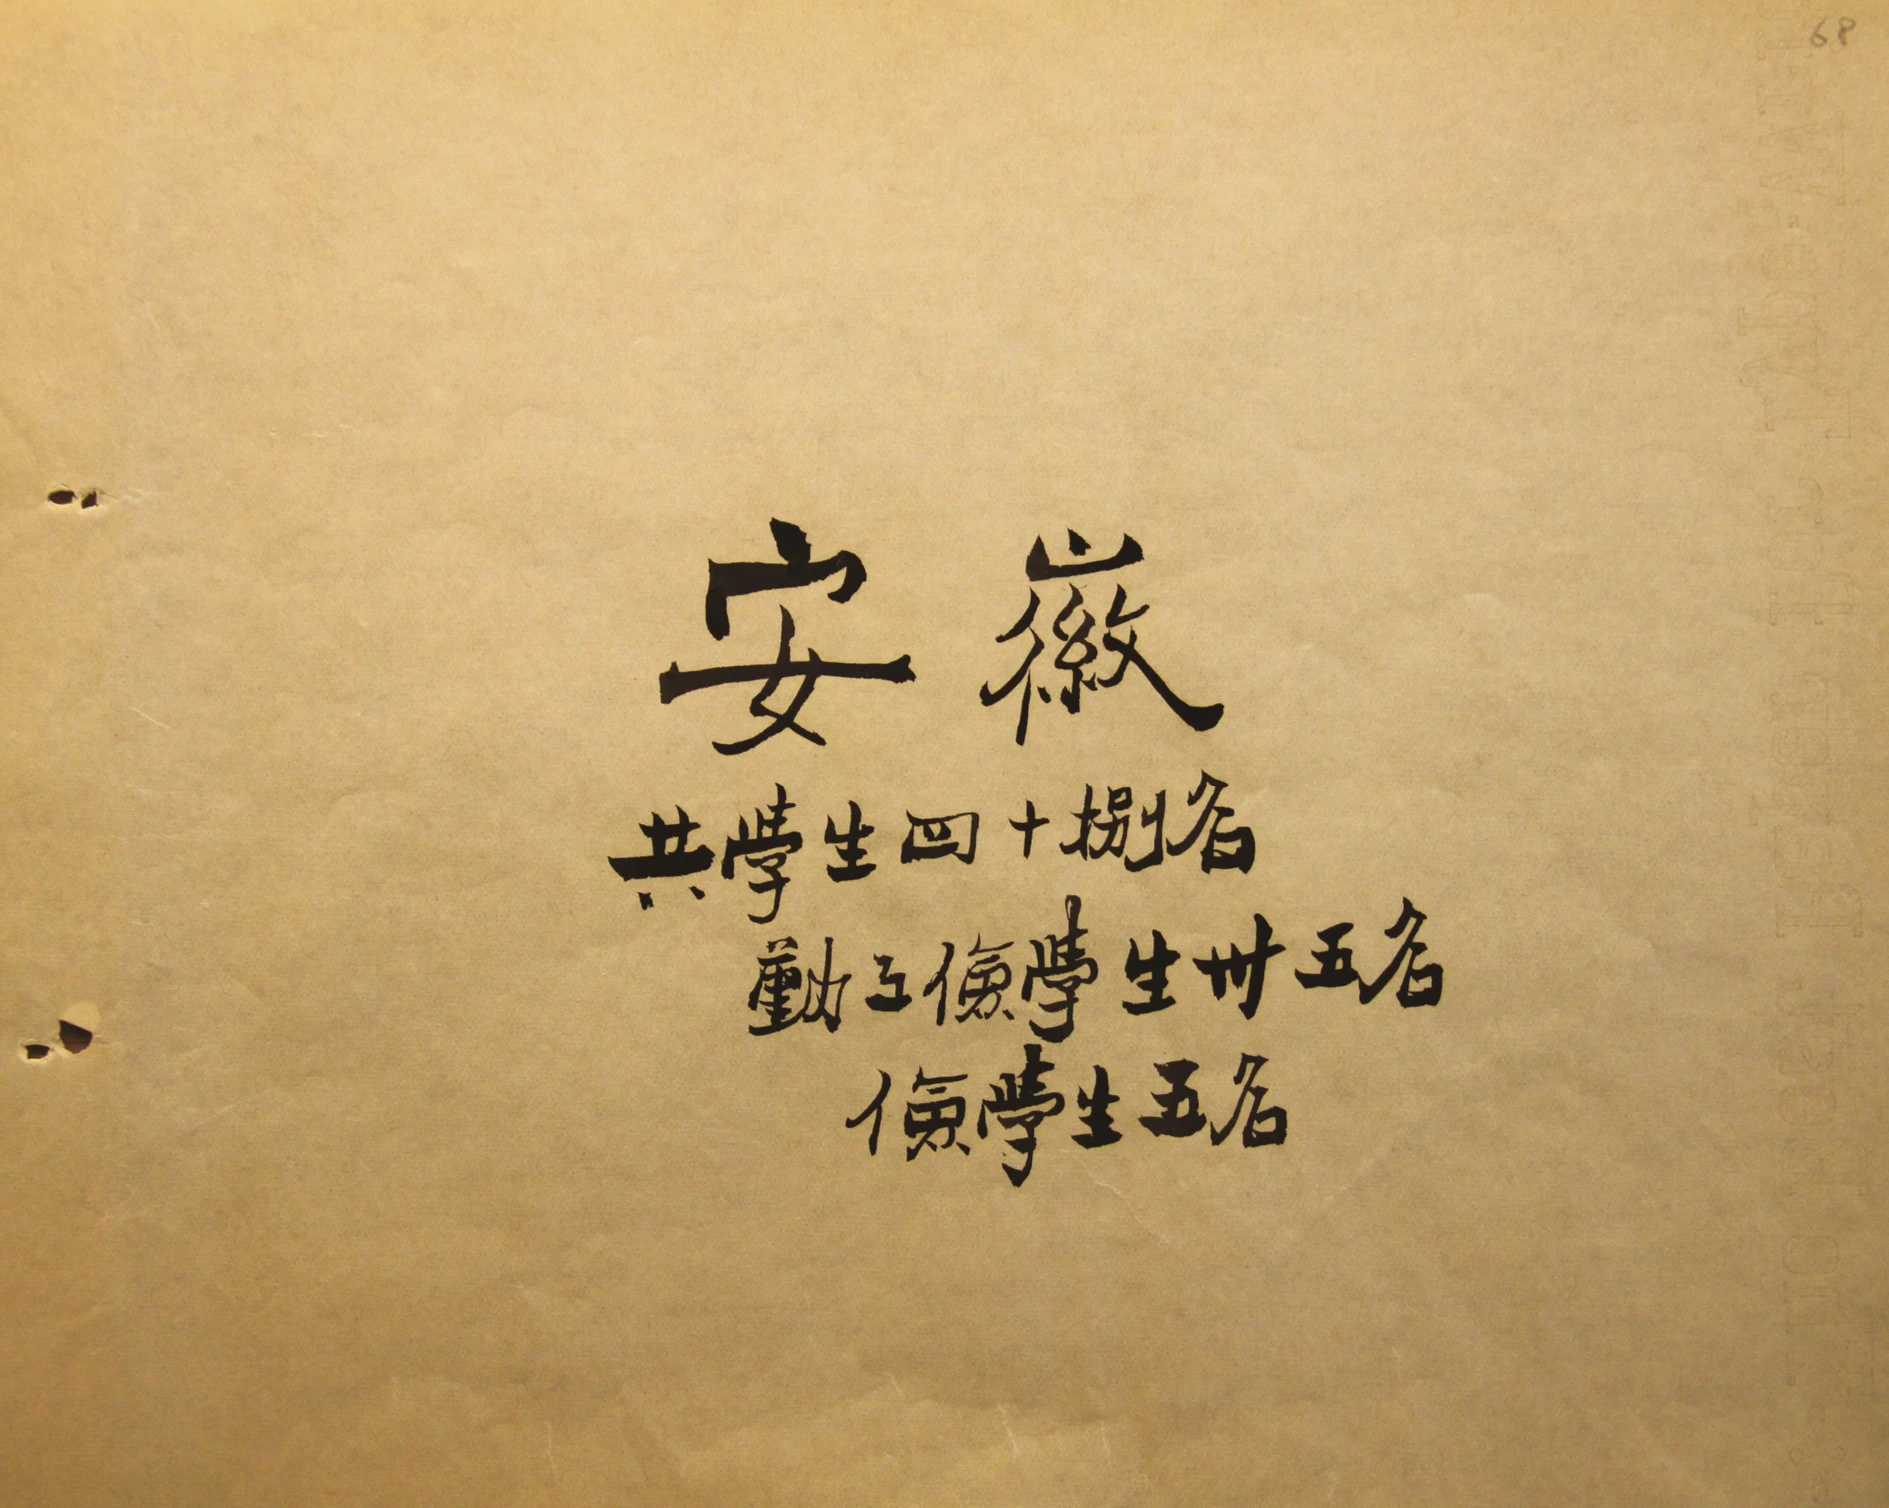 68
安徽
共學生四十捌名
勤工儉學生卅五名
儉學生五名